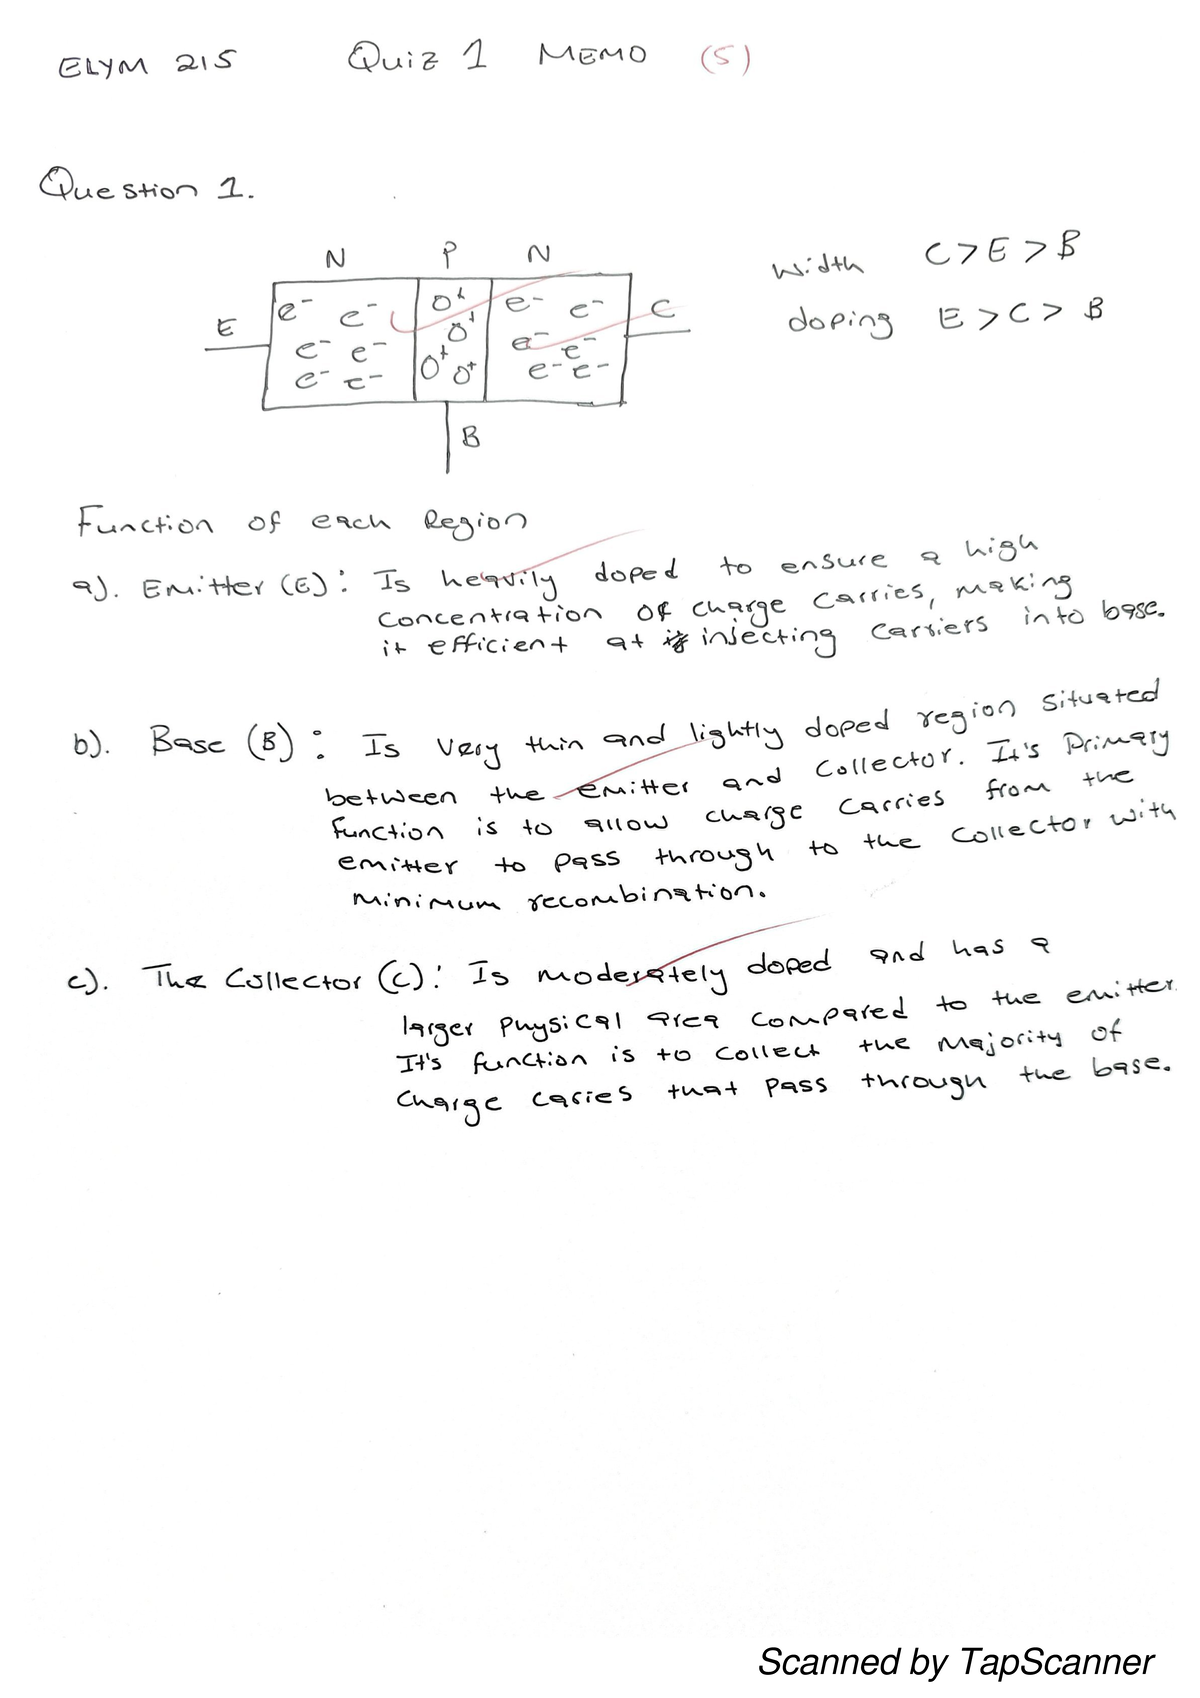 ELYM 215 Quiz 1 MEMO (5)
Question 1.
N P N
Width C > E > B
doping E > C > B
E e- e- o+ e- e- C
e- e- o+ e- e-
e- e- o+ o+ e- e-
B
Function of each Region
a). Emitter (E): Is heavily doped to ensure a high
concentration of charge carries, making
it efficient at injecting carriers into base.
b). Base (B): Is very thin and lightly doped region situated
between the emitter and collector. It's Primary
function is to allow charge carries from the
emitter to pass through to the collector with
minimum recombination.
c). The Collector (C): Is moderately doped and has a
larger physical area compared to the emitter.
It's function is to collect the majority of
charge caries that pass through the base.
Scanned by TapScanner